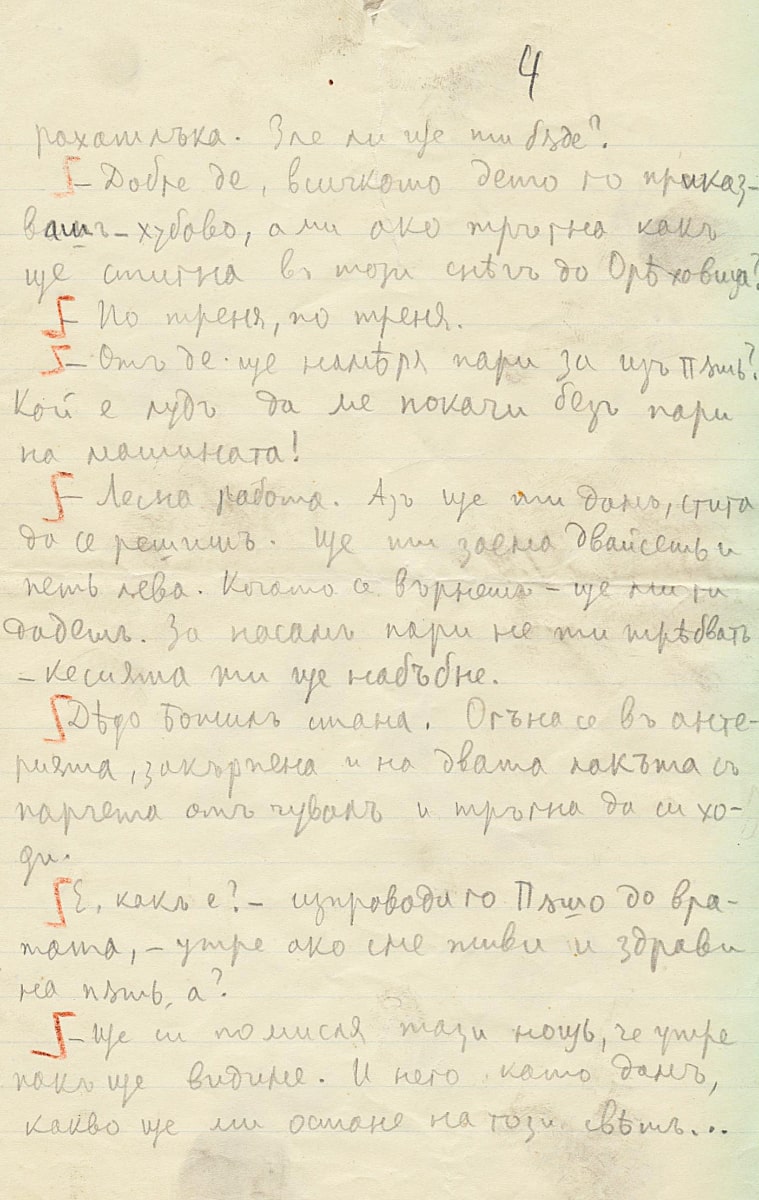 4
рахатлъка. Зле ли ще ти бѫде?
– Добре де, всичкото дето го приказ-
вашъ – хубаво, ами ако тръгна какъ
ще стигна въ този снѣгъ до Орѣховица?
– По треня, по треня.
– Отъ де ще намѣря пари за изъ пѫть?
Кой е лудъ да ме покачи безъ пари
на машината!
– Лесна работа. Азъ ще ти дамъ, стига
да се решишъ. Ще ти заема двайсеть и
петь лева. Когато се върнешъ – ще ми ги
дадешъ. За насамъ пари не ти трѣбватъ
– кесията ти ще набъбне.
Дѣдо Божилъ стана. Огъна се въ анте-
рията, закърпена и на двата лакътя съ
парчета отъ чувалъ и тръгна да си хо-
ди.
Е, какъ е? – изпроводи го Пѫшо до вра-
тата, – утре ако сме живи и здрави
на пѫть, а?
– Ще си помисля тази нощь, че утре
пакъ ще видиме. И него като дамъ,
какво ще ми остане на този свѣтъ...